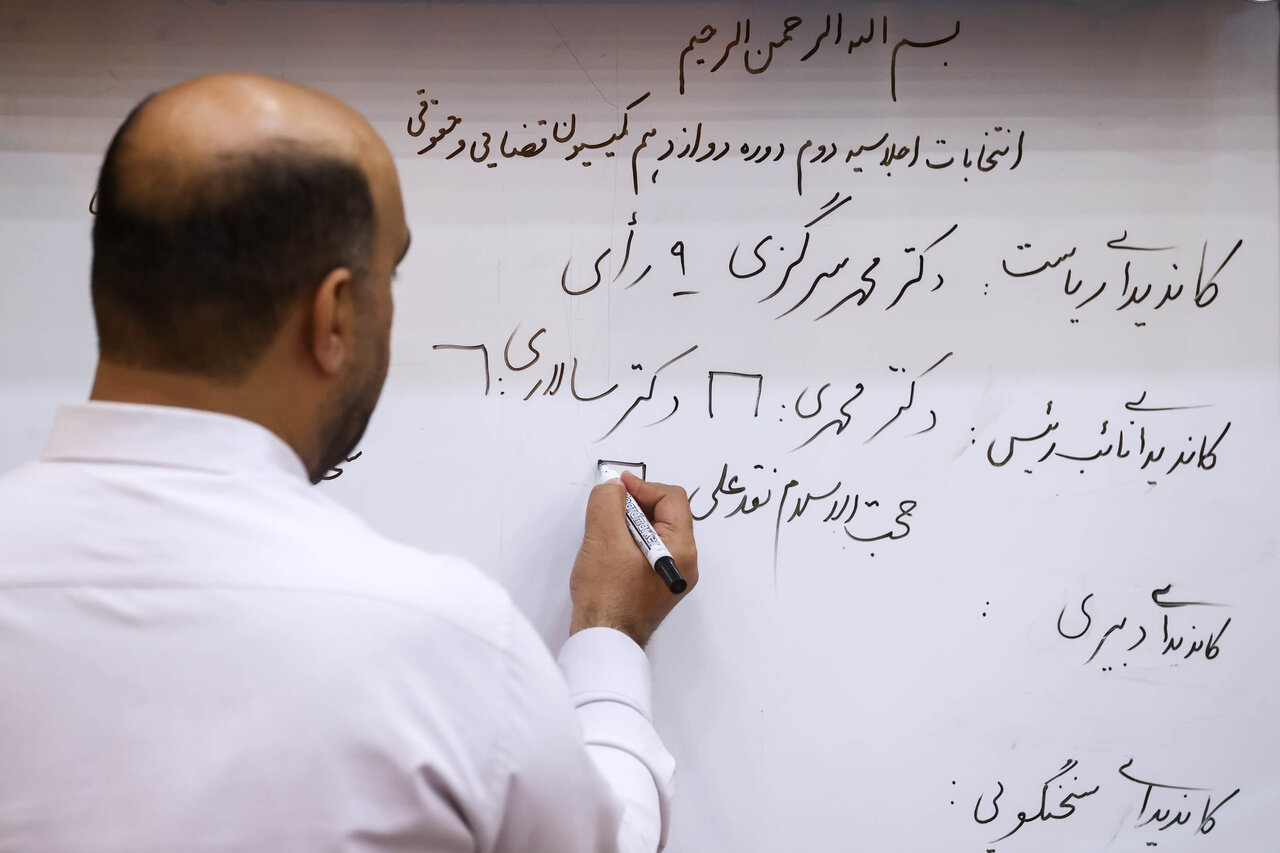 بسم الله الرحمن الرحیم
انتخابات اجلاسیه دوم دوره دوازدهم کمیسیون قضایی و حقوقی
کاندیدای ریاست : دکتر محمد سرگزی ۹ رأی
کاندیدای نائب رئیس : دکتر محمدی : دکتر سالاری :
حجت الاسلام نقدعلی
کاندیدای دبیری :
کاندیدای سخنگویی :